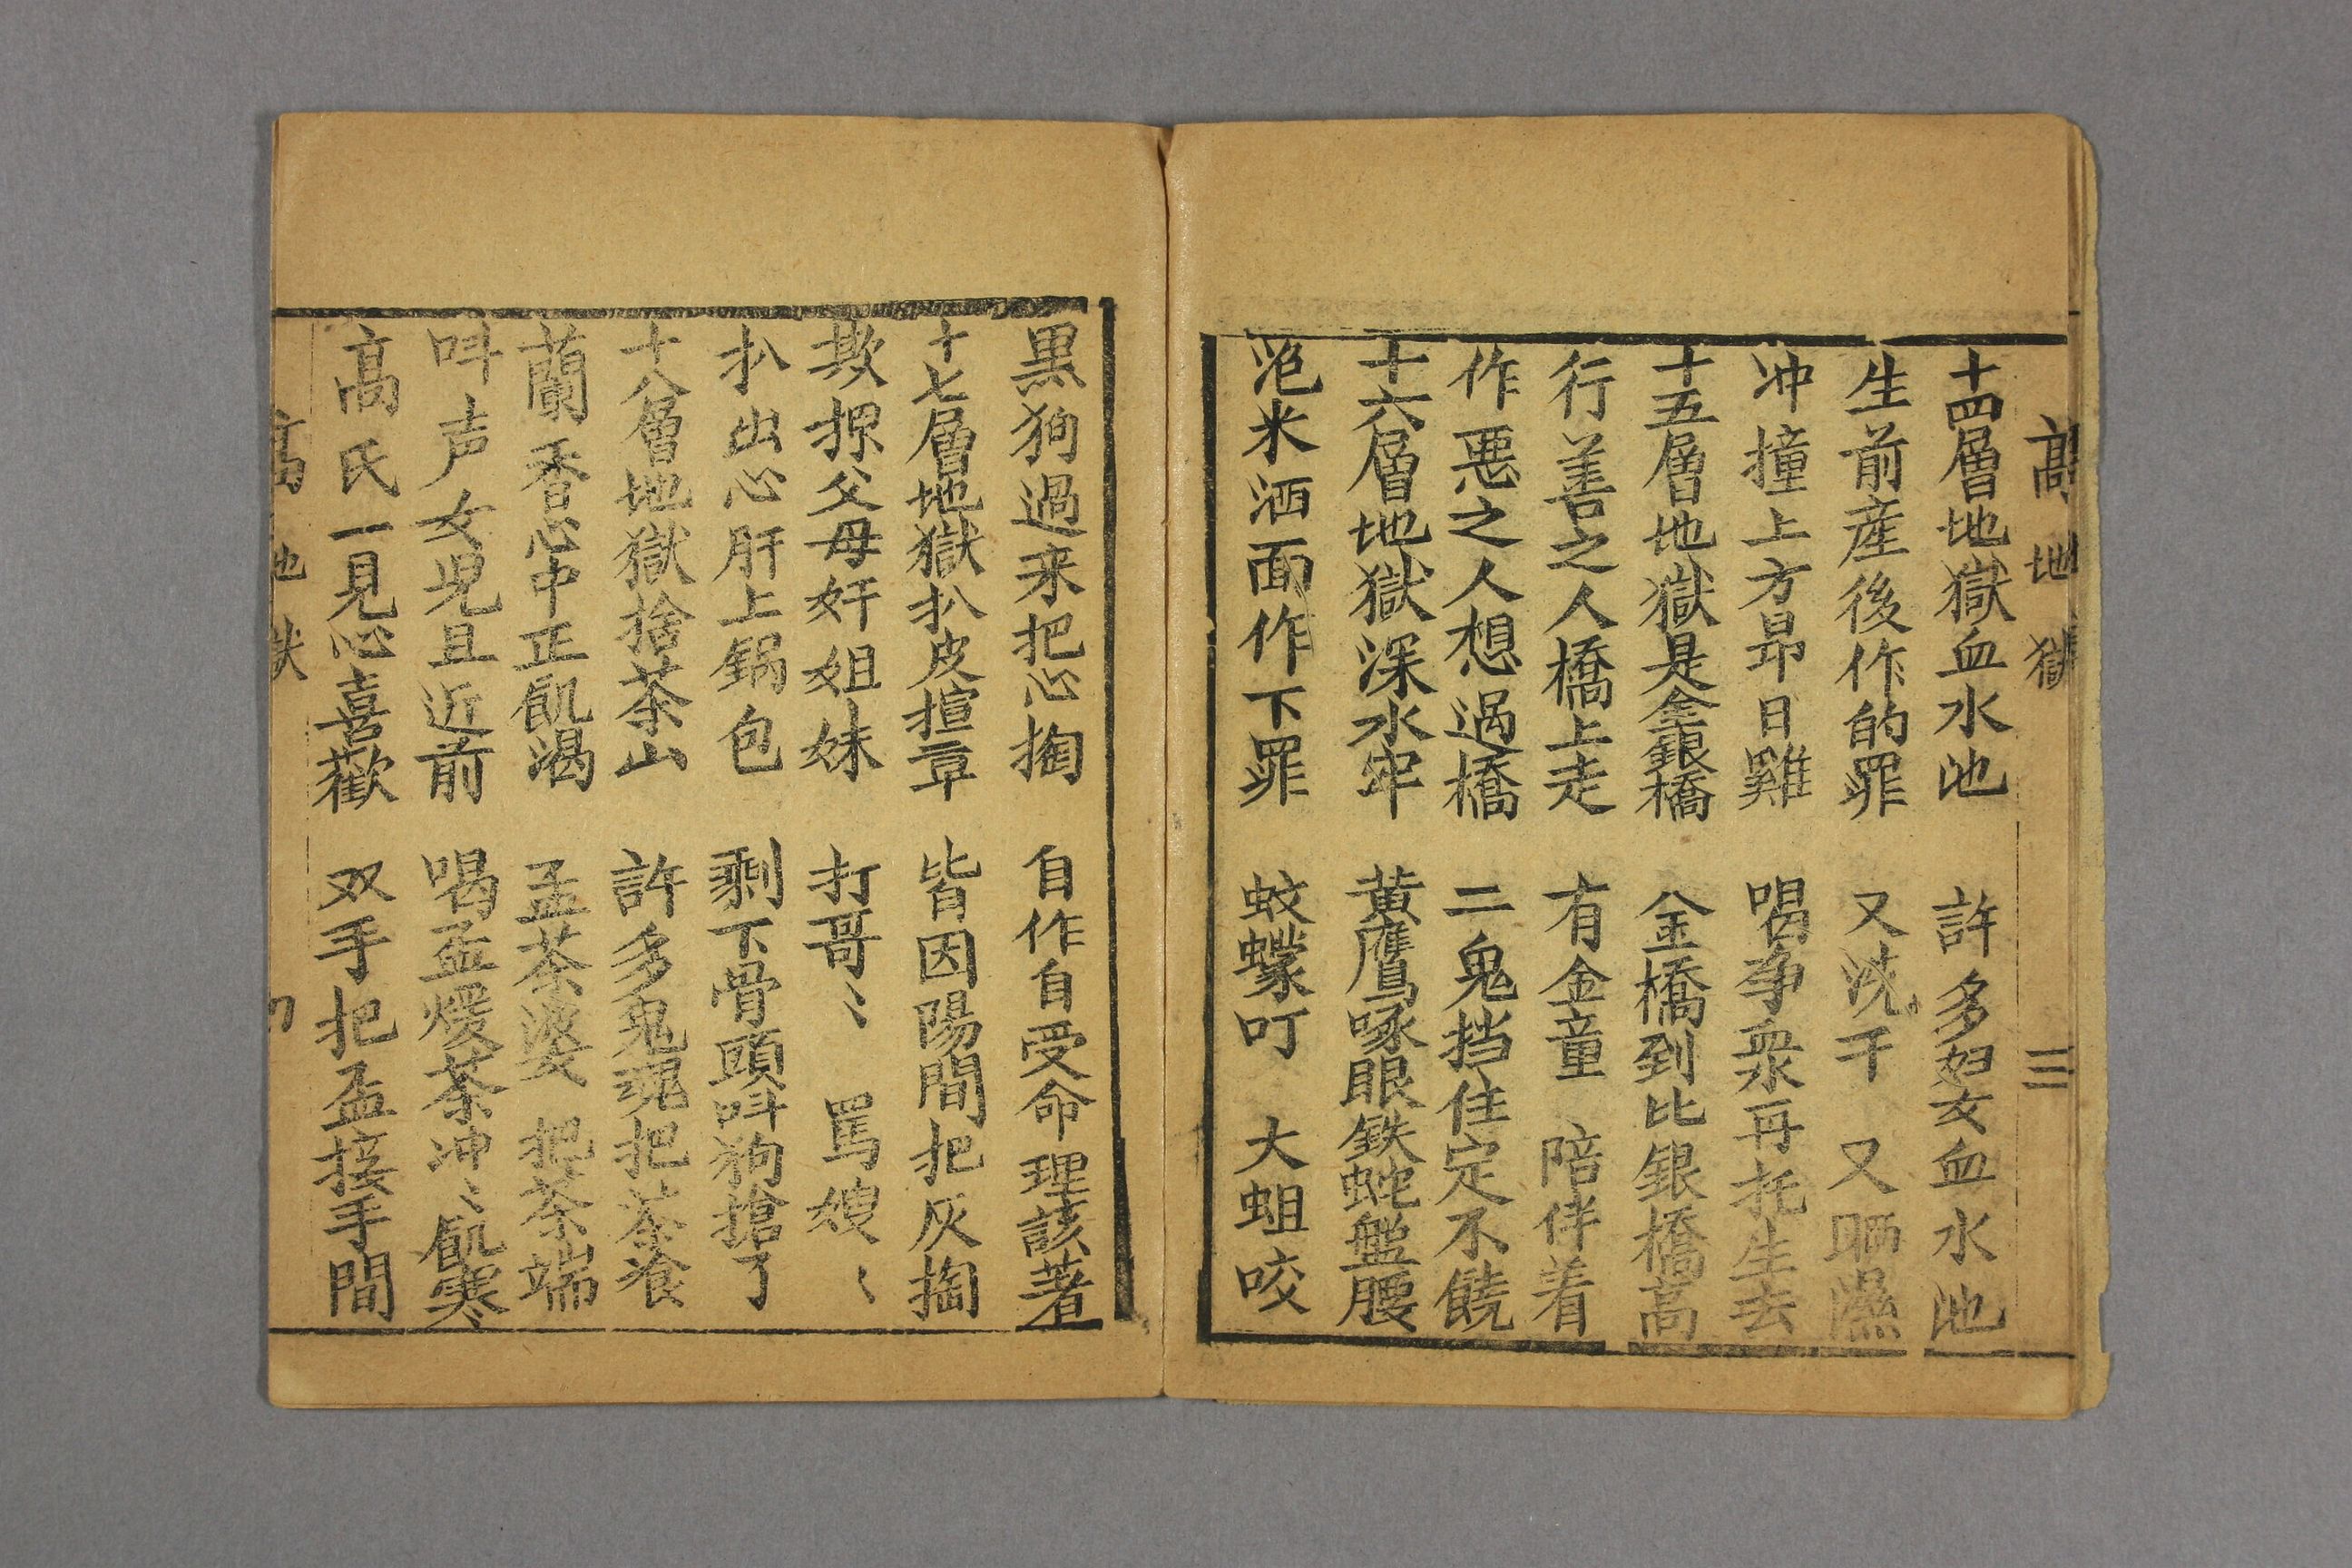 高 地獄 三
十四層地獄血水池 許多妇女血水池
生前産後作的罪 又洗干 又晒濕
冲撞上方昻日雞 喝争衆再托生去
十五層地獄是金銀橋 金橋到比銀橋高
行善之人橋上走 有金童 陪伴着
作惡之人想過橋 二鬼挡住定不饒
十六層地獄深水牢 黄鷹啄眼鉄蛇盤腰
米洒面作下罪 蚊蠓叮 大蛆咬
黒狗過来把心掏 自作自受命理該著
十七層地獄扒皮揎草 皆因陽間把灰掏
欺父母奸姐妹 打哥〻 罵嫂〻
扒出心肝上锅包 剩下骨頭呌狗搶了
十八層地獄捨茶山 許多鬼魂把茶飡
蘭香心中正飢渴 孟茶婆 把茶端
呌声女児且近前 喝盃煖茶冲〻飢寒
高氏一見心喜歡 双手把盃接手間
高 地獄